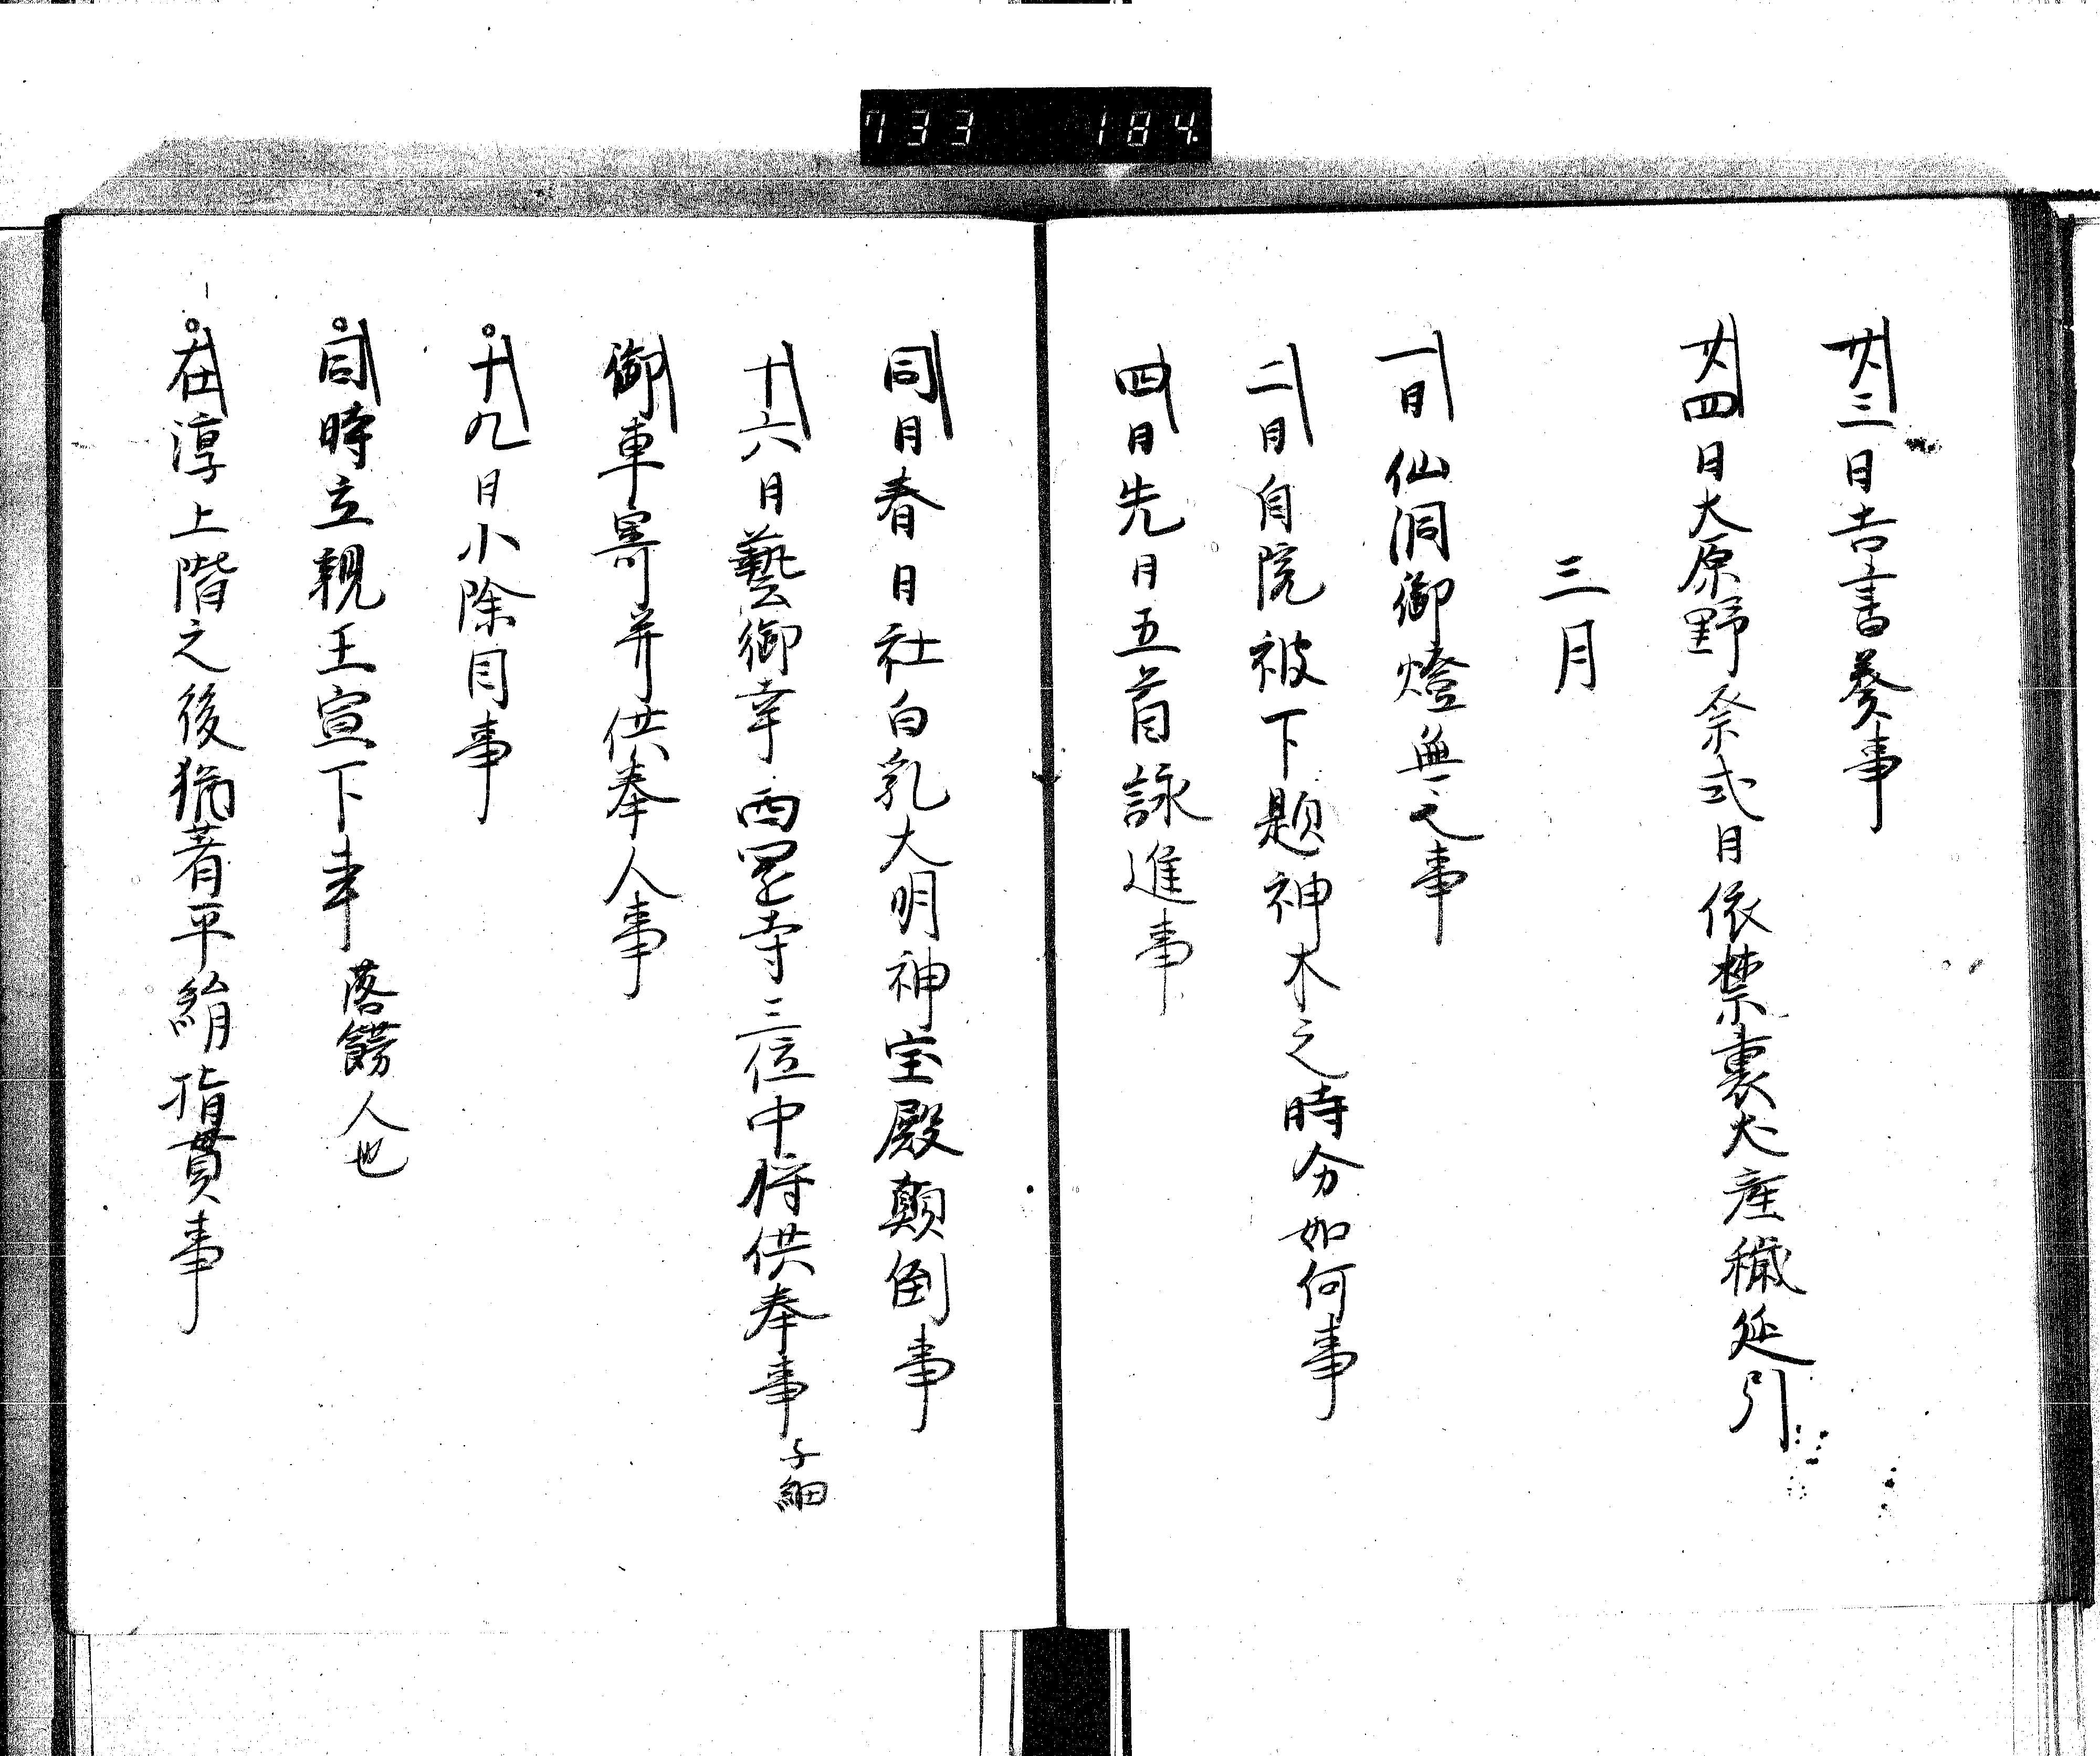 733 184
廿三日吉書奏事
廿四日大原野祭式日依禁裏犬産穢延引
三月
一日仙洞御燈無之事
二日自院被下題神木之時分如何事
四日先日五首詠進事
同日春日社白乳大明神宝殿顛倒事
十六日藝御幸西園寺三位中将供奉事子細
御車寄并供奉人事
十九日小除目事
同時立親王宣下事落餝人也
在淳上階之後猶著平絹指貫事